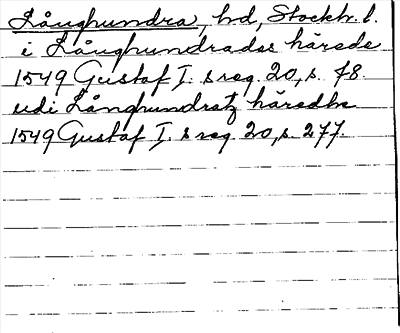 Långhundra, hd, Stockh. l.
i Långhundradss härede
1549 Gustaf I. s reg. 20, s. 78.
udi Långhundratz häredhe
1549 Gustaf I. s reg. 20, s. 277.